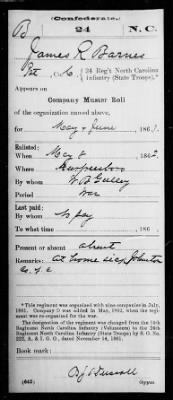 (Confederate.)
B 24 N.C.
James R Barnes
Pvt, Co. C, 24 Reg't North Carolina Infantry (State Troops).*
Appears on
Company Muster Roll
of the organization named above,
for May & June, 186
Enlisted:
When May 8, 186
Where
By whom W. B. Gulley
Period war
Last paid:
By whom No pay
To what time , 186
Present or absent absent
Remarks: At home sick Johnston
Co. N. C.
*This regiment was organized with nine companies in July,
1861. Company D was added in May, 1862, when the regi-
ment was reorganized.
The designation of the regiment was changed from the 14th
Regiment North Carolina Infantry (Volunteers) to the 24th
Regiment North Carolina Infantry (State Troops) by S. O. No.
222, A. & I. G. O., dated November 14, 1861.
Book mark:
(642)
Copyist.